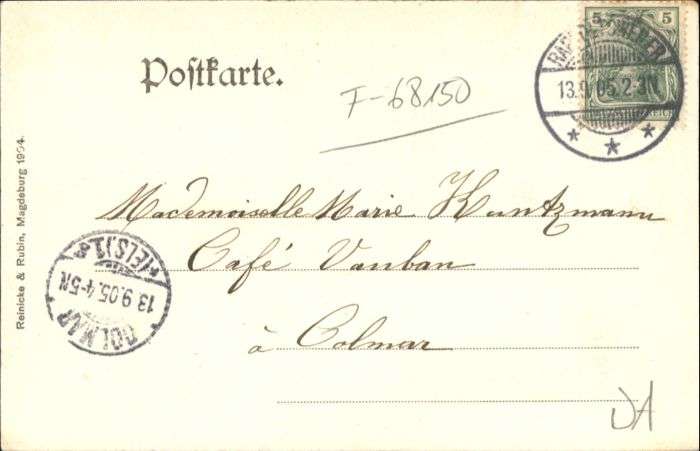 Postkarte.
F-68150
5 5
13.9.05.2-3N
Mademoiselle Marie Kuntzmann
Café Vauban
à Colmar
COLMAR
13.9.05.4-5N
*(ELS.)1
Reinicke & Rubin, Magdeburg 1904.